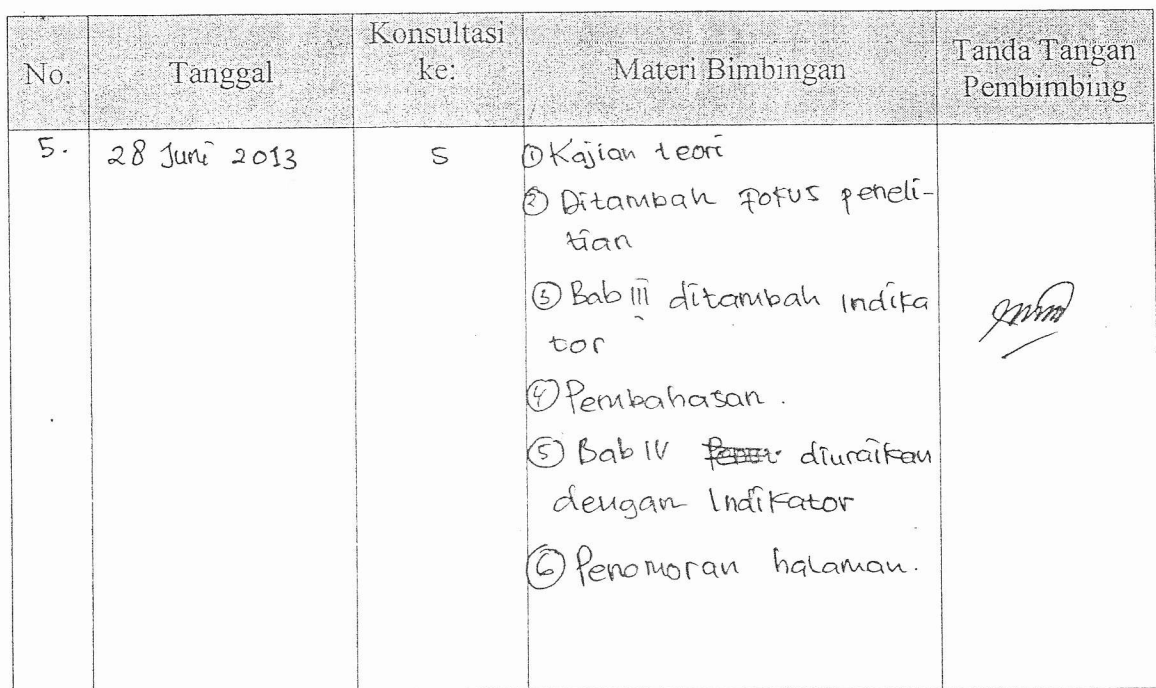 No.
Tanggal
Konsultasi
ke:
Materi Bimbingan
Tanda Tangan
Pembimbing
5.
28 Juni 2013
5
① Kajian teori
② Ditambah fokus peneli-
tian
③ Bab III ditambah indika
tor
④ Pembahasan.
⑤ Bab IV diuraikan
dengan Indikator
⑥ Penomoran halaman.